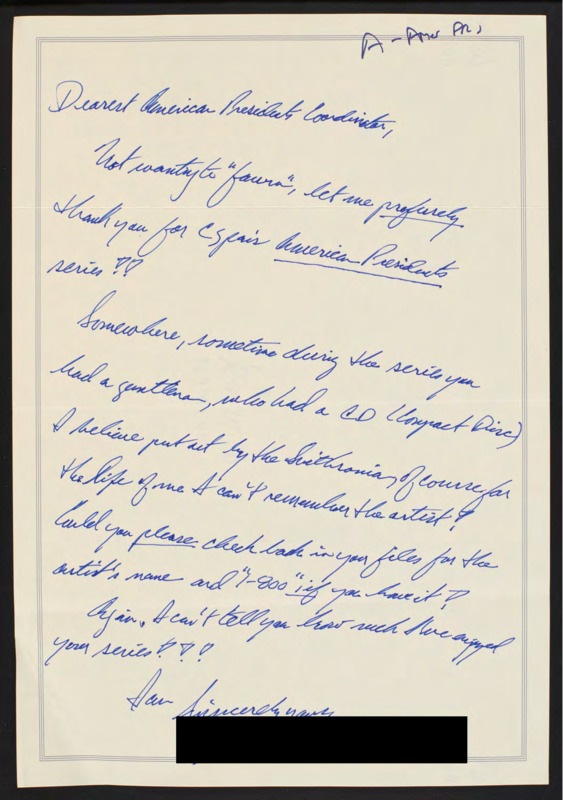 Dearest American Presidents Coordinator,
Not wanting to "fawn", let me profusely
thank you for CSpan's American Presidents
series!!
Somewhere, sometime during the series you
had a gentleman, who had a CD (Compact Disc)
I believe put out by the Smithsonian, of course for
the life of me I can't remember the artist!
Could you please check back in your files for the
artist's name and "1-800" if you have it!
Again, I can't tell you how much I've enjoyed
your series!!!
I am Sincerely yours